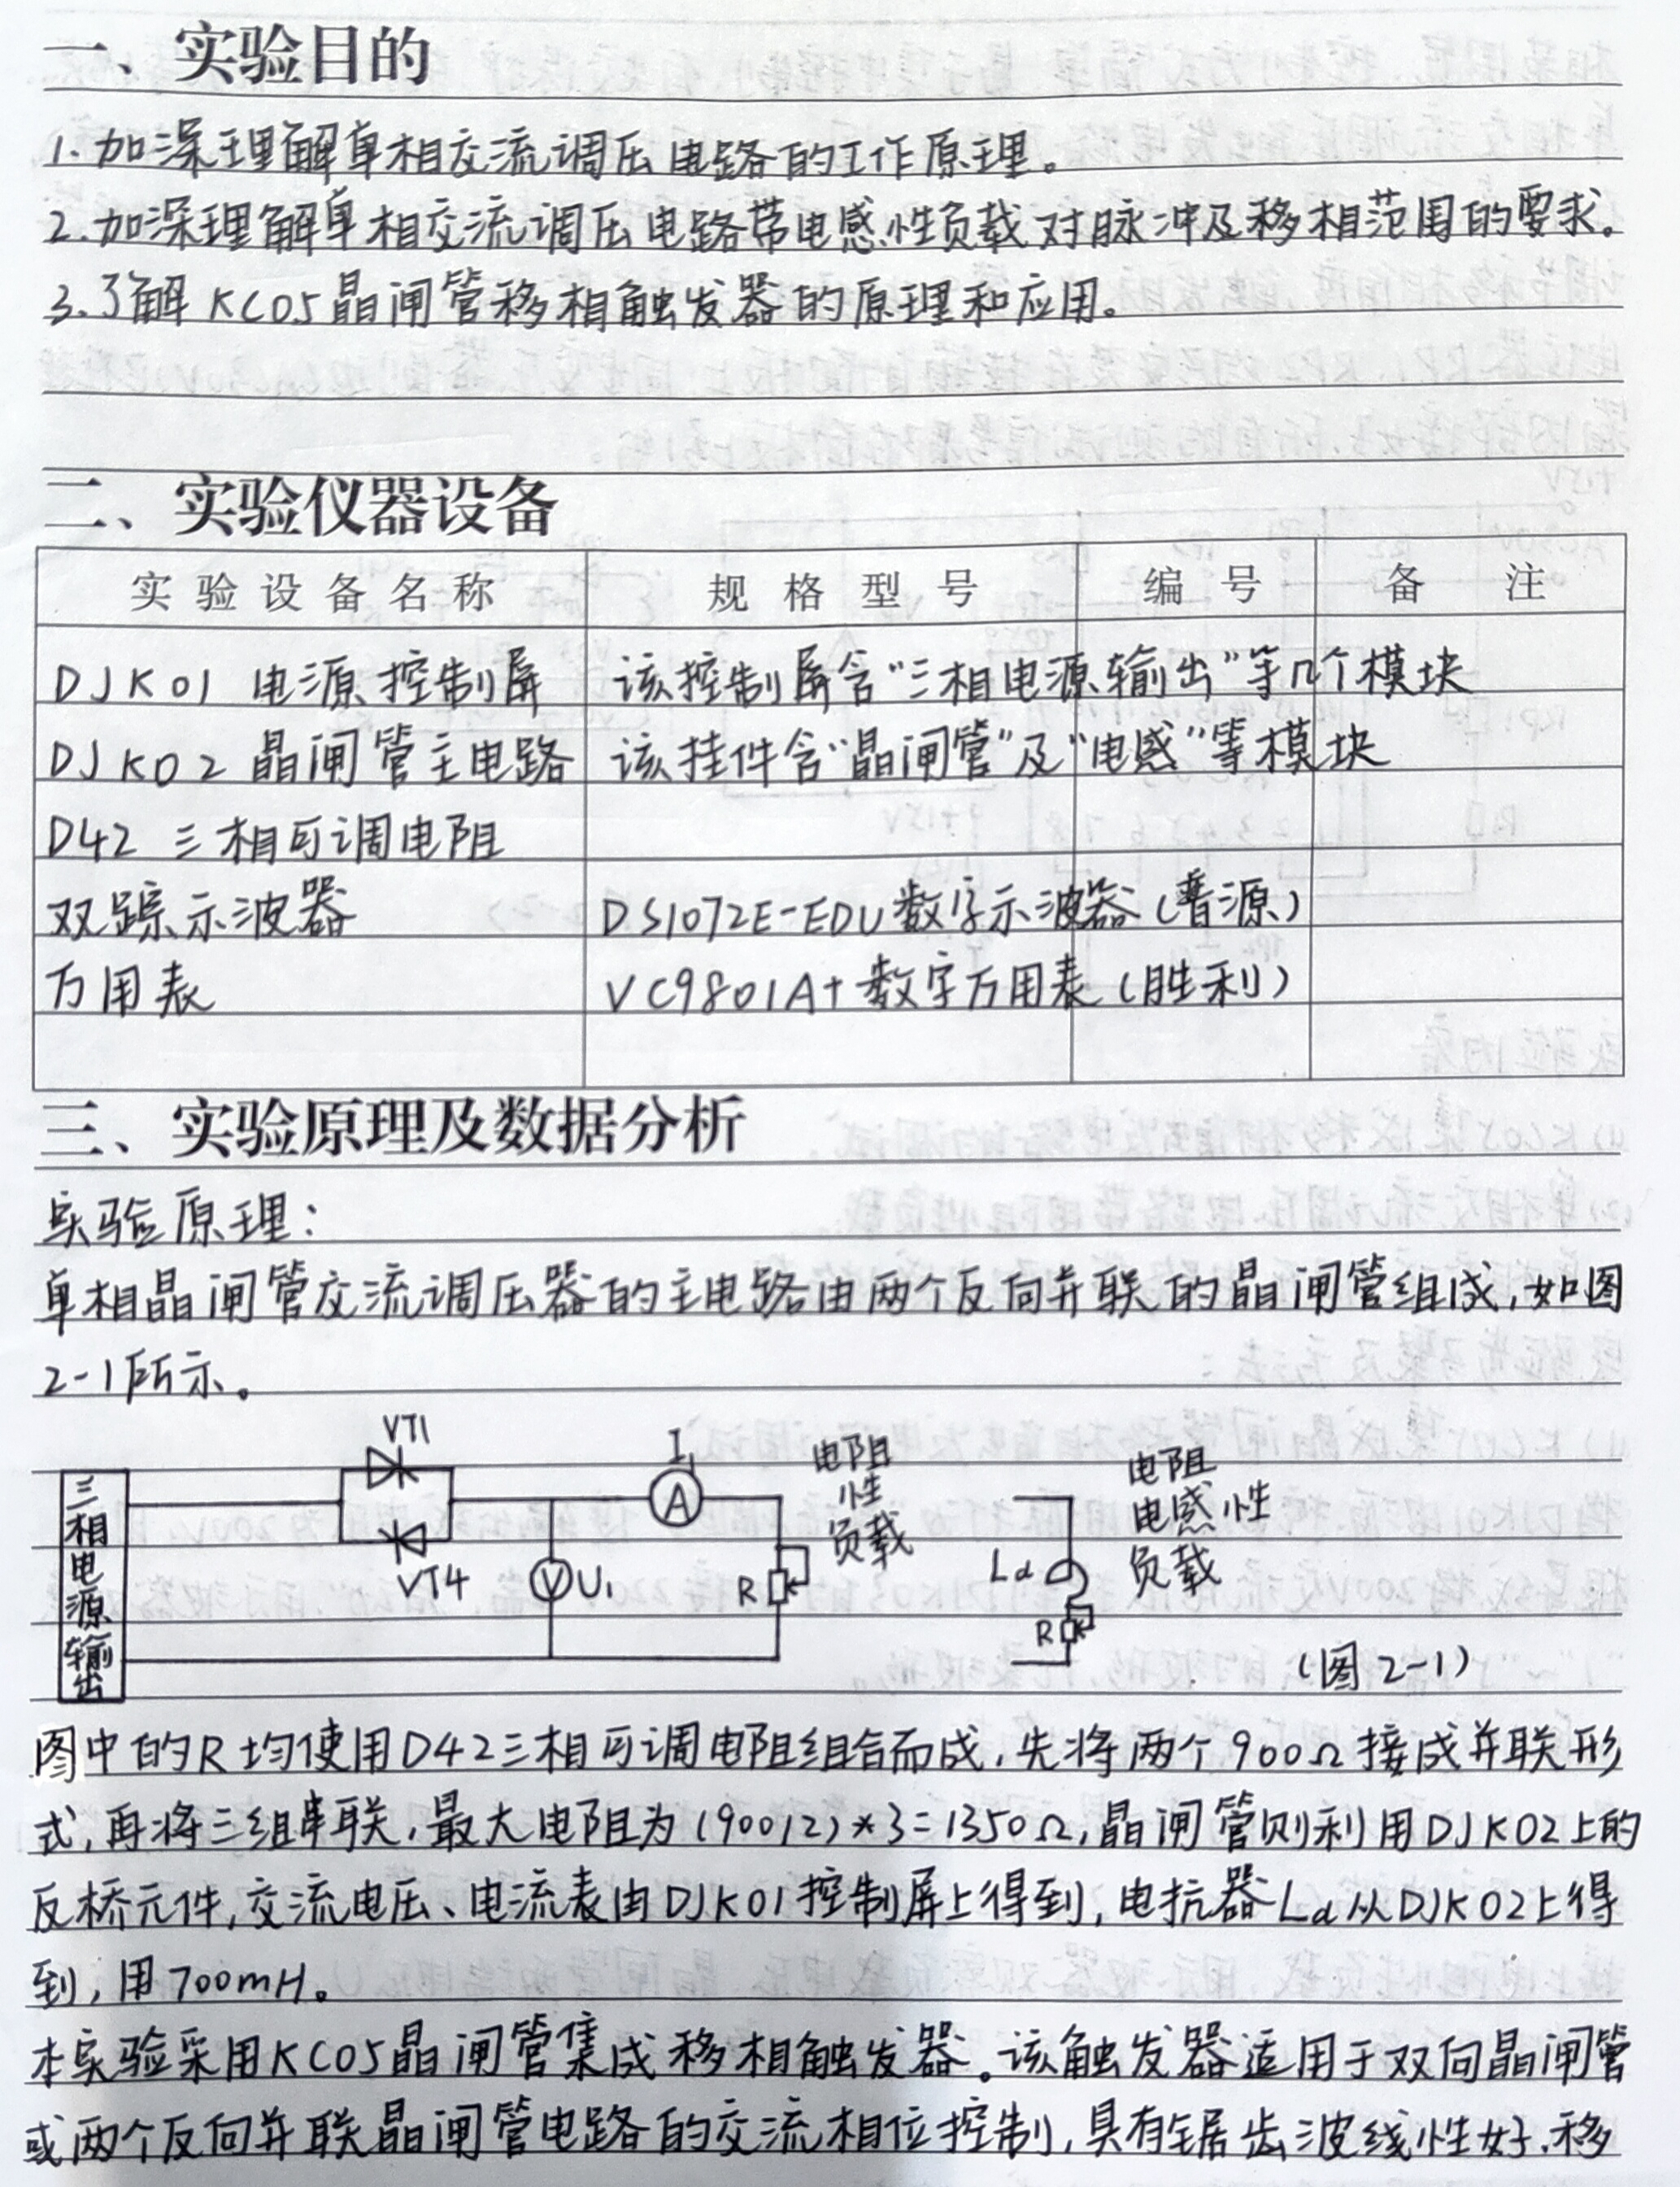 一、实验目的
1.加深理解单相交流调压电路的工作原理。
2.加深理解单相交流调压电路带电感性负载对脉冲及移相范围的要求。
3.了解KC05晶闸管移相触发器的原理和应用。
二、实验仪器设备
实验设备名称 规格型号 编号 备注
DJK01 电源控制屏 该控制屏含“三相电源输出”等几个模块
DJK02 晶闸管主电路 该挂件含“晶闸管”及“电感”等模块
D42 三相可调电阻
双踪示波器 DS1072E-EDU数字示波器(普源)
万用表 VC9801A+数字万用表(胜利)
三、实验原理及数据分析
实验原理:
单相晶闸管交流调压器的主电路由两个反向并联的晶闸管组成,如图
2-1所示。
三相电源输出
VT1
VT4
I1
A
V U1
R
电阻
性
负载
Ld
R
电阻
电感性
负载
(图2-1)
图中的R均使用D42三相可调电阻组合而成,先将两个900Ω接成并联形
式,再将三组串联,最大电阻为(900/2)*3=1350Ω,晶闸管则利用DJK02上的
反桥元件,交流电压、电流表由DJK01控制屏上得到,电抗器Ld从DJK02上得
到,用700mH。
本实验采用KC05晶闸管集成移相触发器。该触发器适用于双向晶闸管
或两个反向并联晶闸管电路的交流相位控制,具有锯齿波线性好、移